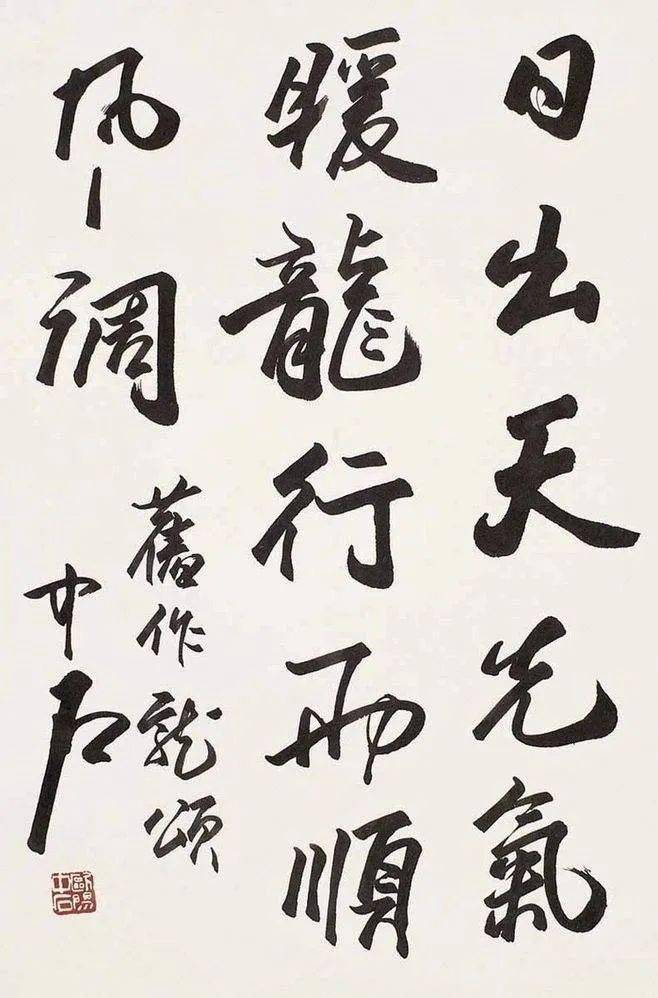 日出天光氣
暖龍行雨順
風調
舊作龍頌
中石
歐陽
中石